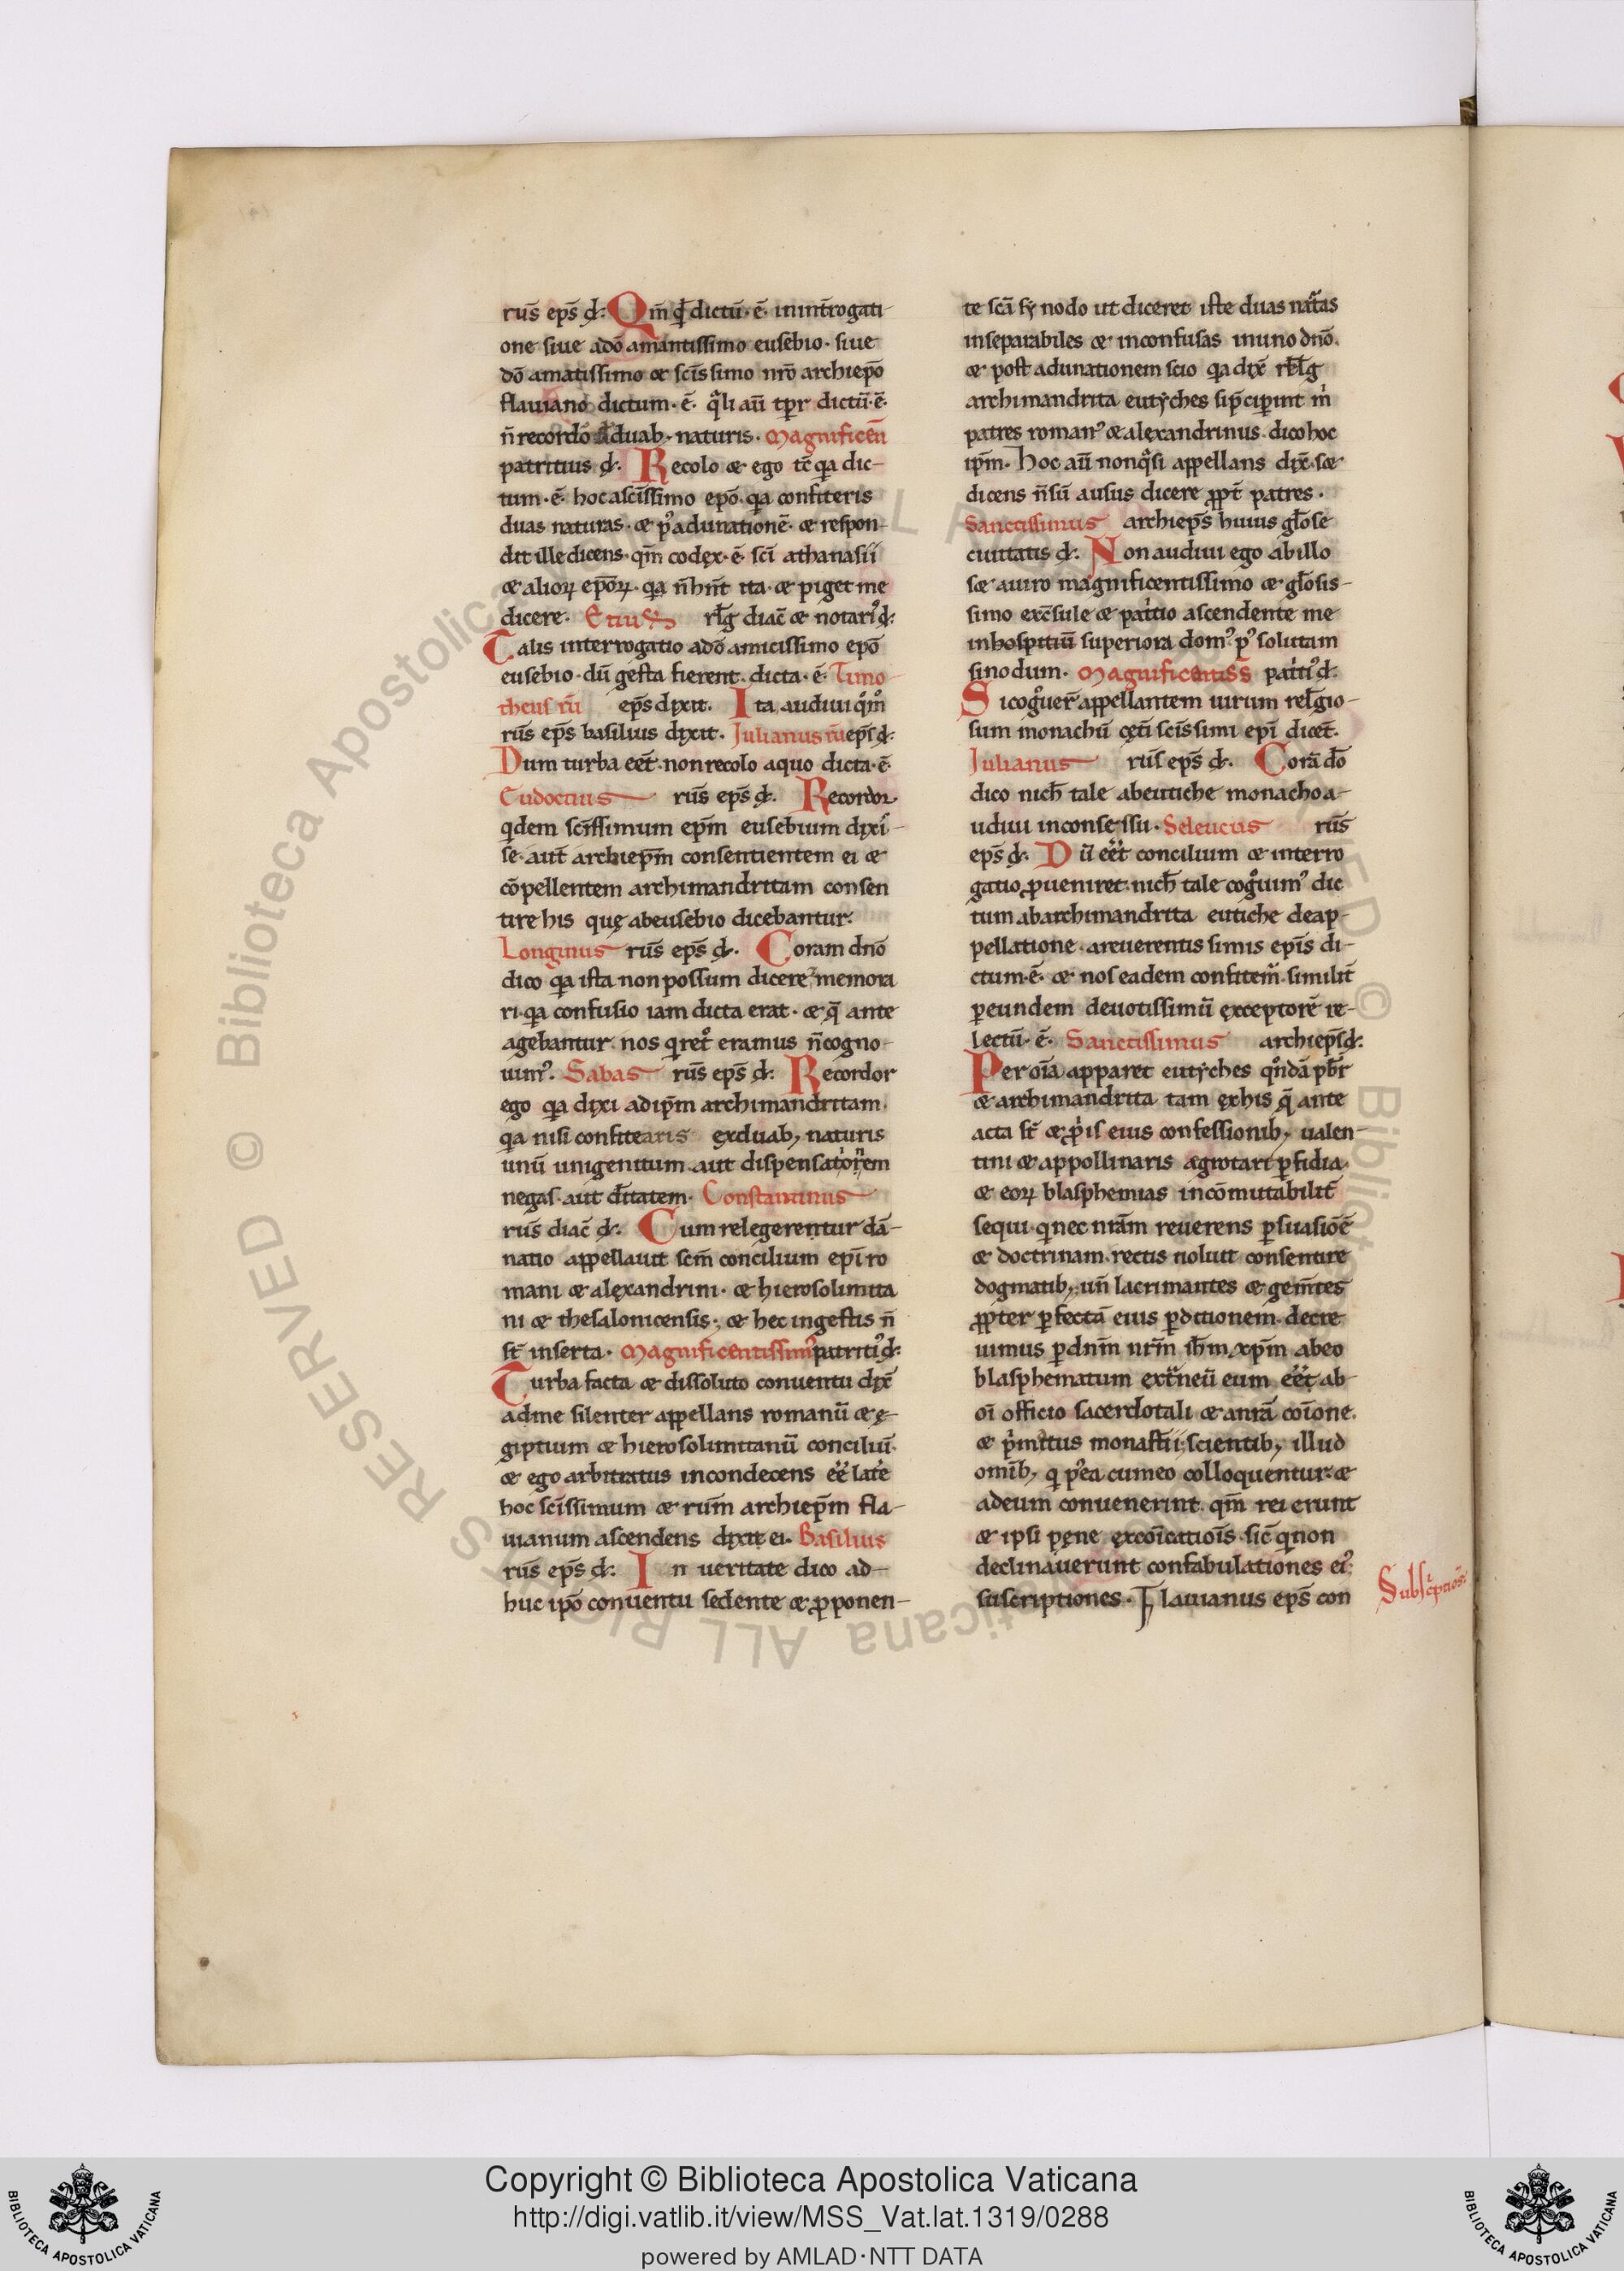 rus̄ ep̄s d̄: Qm̄ qd̄ dictū·ē· in int̄rogati-
one siue adō amantissimo eusebio· siue
dō amatissimo & sc̄issimo nr̄o archiep̄o
flauiano dictum·ē· qͣli aū tp̄r dictū·ē·
n̄ recordo d duab· naturis· Magnificen̄
patritius d̄. Recolo & ego tc̄ qa dic-
tum·ē· hoc a sc̄issimo ep̄o· qa confiteris
duas naturas· & p᷒ adunationē· & respon-
dit ille dicens· qm̄ codex·ē· sc̄i athanasii
& alioꝝ ep̄oꝝ· qa n̄ hn̄t ita· & piget me
dicere· Etius rl̄g diac̄ & notari᷒ d̄:
Talis interrogatio adō amicissimo ep̄o
eusebio· dū gesta fierent· dicta·ē· Timo-
theus rū ep̄s dixit. Ita audiui qm̊
rus̄ ep̄s basilius dixit. Julianus rū ep̄s d̄:
Dum turba eēt· non recolo a quo dicta·ē·
Eudoctius rus̄ ep̄s d̄. Recordor·
qdem sc̄issimum ep̄m eusebium dixi-
se· aut̄ archiep̄m consentientem ei &
cōpellentem archimandritam consen
tire his quę ab eusebio dicebantur·
Longinus rus̄ ep̄s d̄. Coram dn̄o
dico qa ista non possum dicere memora
ri· qa confusio iam dicta erat· & q̄ ante
agebantur nos qret̊ eramus n̄ cogno-
uim᷒. Sabas rus̄ ep̄s d̄: Recordor
ego qa dixi ad ip̄m archimandritam·
qa nisi confitearis ex duab; naturis
unū unigenitum· aut dispensatorem
negas· aut dītatem· Constantinus
rus̄ diac̄ d̄. Cum relegerentur dā-
natio appellauit scm̄ concilium ep̄i ro
mani & alexandrini· & hierosolimita
ni & thesalonicensis·, & hec in gestis n̄
st̄ inserta· Magnificentissim᷒ patriti᷒ d̄:
Turba facta & dissoluto conuentu dix̄
ad me silenter appellans romanū & ę-
giptium & hierosolimitanū conciliū·
& ego arbitratus incondecens eē late
hoc sc̄issimum & rum̄ archiep̄m fla-
uianum ascendens dixit ei· Basilius
rus̄ ep̄s d̄: In ueritate dico ad-
huc ip̄o conuentu sedente & ꝓponen-
te sc̄a sy nodo ut diceret iste duas natᷓas
inseparabiles & inconfusas in uno dn̄o.
& post adunationem scio qa dix̄ rl̄g
archimandrita eutyches sip̄cipint m̄
patres roman᷒ & alexandrinus· dico hoc
ip̄m· Hoc aū non qͣsi appellans dix̄· s&
dicens n̄ sū ausus dicere ꝓpt̄ patres·
Sanctissimus archiep̄s huius gl̄ose
ciuitatis d̄: Non audiui ego ab illo
s& a uiro magnificentissimo & gl̄osis-
simo exc̄sule & patͥtio ascendente me
in hospitiū superiora dom᷒ p᷒ solutam
sinodum· Magnificentiss̄ patͥti᷒ d̄.
Si cog̊uer̄ appellantem uirum rel̄gio-
sum monachū cęti sc̄issimi ep̄i dicet̄.
Julianus rus̄ ep̄s d̄. Corā dō
dico nich̄ tale ab eutiche monacho a-
udiui in consessu· Seleucus rus̄
ep̄s d̄. Dū eēt concilium & interro
gatio ꝓueniret· nich̄ tale cog̊uim᷒ dic
tum ab archimandrita eutiche de ap-
pellatione· a reuerentis simis ep̄is di-
ctum·ē· & nos eadem confitem̄ similit̄
ꝑ eundem deuotissimū exceptorē re-
lectū·ē· Sanctissimus archiep̄s d̄:
Per oīa apparet eutyches qn̊dā pb̄r
& archimandrita tam ex his q̄ ante
acta st̄ & pͥis eius confessionib; ualen-
tini & appollinaris ægrotari ꝑfidia·
& eoꝝ blasphemias incōmutabilit̄
sequi· q nec nr̄am reuerens ꝑsuasiōē
& doctrinam· rectis noluit consentire
dogmatib;, un̄ lacrimantes & gem̄tes
ꝓpter ꝑfectā eius ꝑditionem· decre
uimus ꝑ dn̄m nr̄m ih̄m xp̄m ab eo
blasphematum extͣneū eum eēt ab-
oī officio sacerdotali & a nrā coīone.
& pͥmitus monast̄ii· scientib; illud
omīb; q p᷒ea cum eo colloquentur· &
ad eum conuenerint qm̄ rei erunt
& ipsi pęne excoīcatiois̄ sic̄ q non
declinauerunt confabulationes ei᷒·
suscriptiones· Flauianus ep̄s con
Subscͥptiōs:
Copyright © Biblioteca Apostolica Vaticana
http://digi.vatlib.it/view/MSS_Vat.lat.1319/0288
powered by AMLAD·NTT DATA
BIBLIOTECA APOSTOLICA VATICANA
BIBLIOTECA APOSTOLICA VATICANA